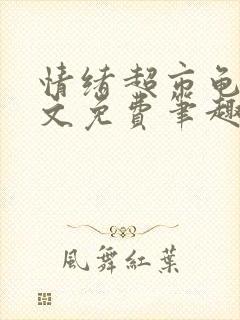 情绪超市龟
文免费笔趣
風舞紅葉